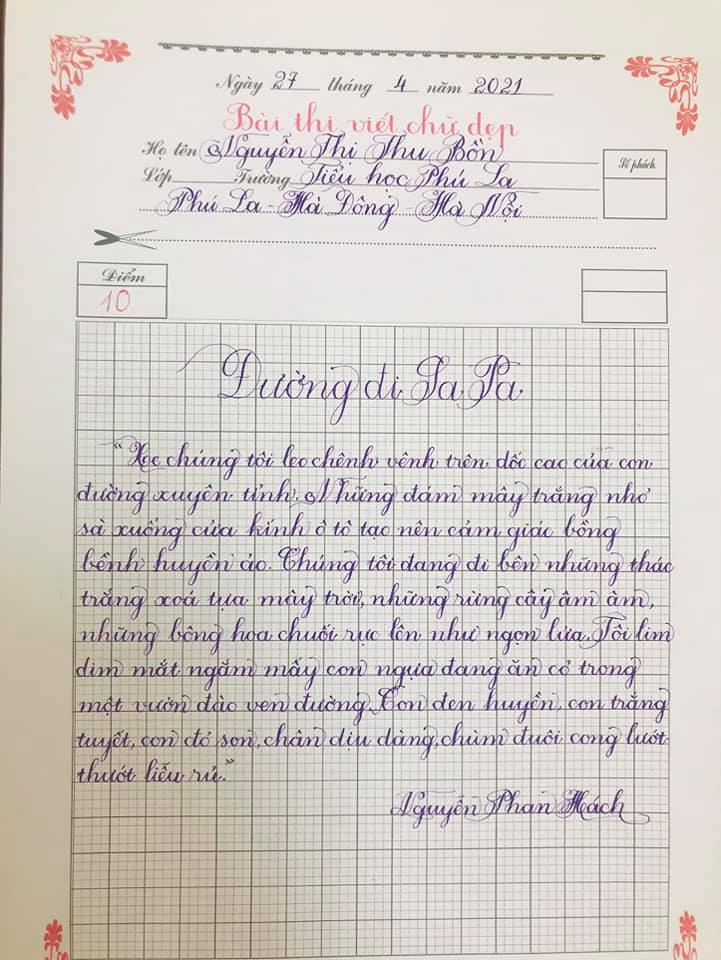 Ngày 27 tháng 4 năm 2021
Bài thi viết chữ đẹp
Họ tên Nguyễn Thi Thu Bồn
Số phách
Lớp Trường Tiểu học Phú La
Phú La - Hà Đông - Hà Nội
Điểm
10
Đường đi Sa Pa
"Xe chúng tôi leo chênh vênh trên dốc cao của con
đường xuyên tỉnh. Những đám mây trắng nhỏ
sà xuống cửa kính ô tô tạo nên cảm giác bồng
bềnh huyền ảo. Chúng tôi đang đi bên những thác
trắng xoá tựa mây trời, những rừng cây âm âm,
những bông hoa chuối rực lên như ngọn lửa. Tôi lim
dim mắt ngắm mấy con ngựa đang ăn cỏ trong
một vườn đào ven đường. Con đen huyền, con trắng
tuyết, con đỏ son, chân dịu dàng, chùm đuôi cong lướt
thướt liễu rủ."
Nguyễn Phan Hách